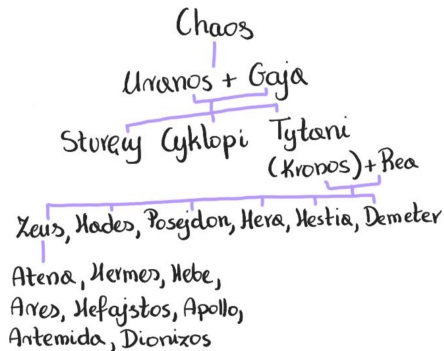 Chaos
Uranos + Gaja
Sturęcy Cyklopi Tytani
(Kronos) + Rea
Zeus, Hades, Posejdon, Hera, Hestia, Demeter
Atena, Hermes, Hebe,
Ares, Hefajstos, Apollo,
Artemida, Dionizos